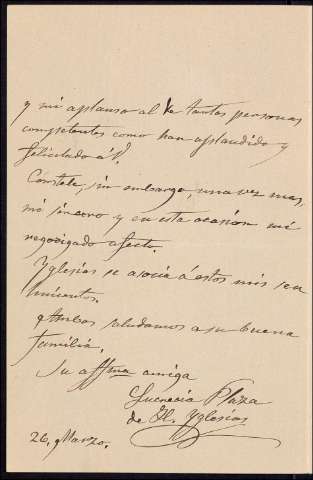 y mi aplauso al de tantas personas
competentes como han aplaudido y
felicitado á V.
Conste le, sin embargo, una vez mas,
mi sincero y en esta ocasión mi
regocijado afecto.
Yglesias se asocia á estos mis sen
timientos.
Ambos saludamos a su buena
familia.
Su affma amiga
Lucrecia Plaza
de Yglesias
26, Marzo.